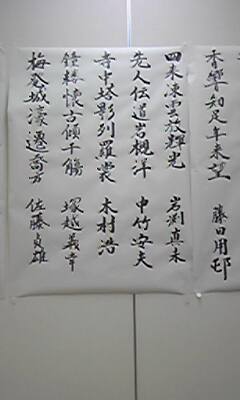 季響知足年来望 藤田用邨
四木凍雲放輝光 岩渕真未
先人伝道岩槻洋 中竹安夫
寺中塔影列羅裳 木村浩
鐘楼懐古傾千觴 塚越義幸
梅発城濠遷喬方 佐藤貞雄